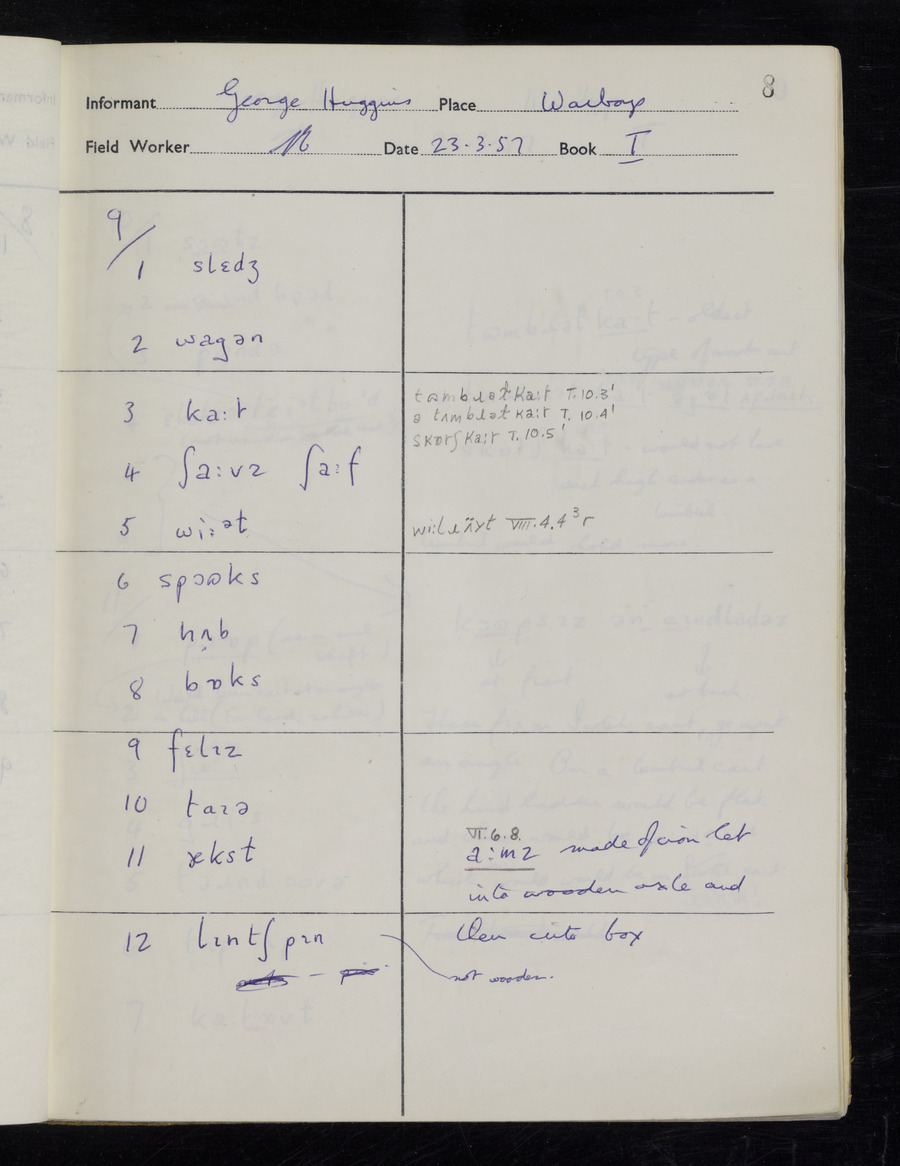 8
Informant George Huggins Place Warboys
Field Worker Date 23.3.57 Book I
9/1 slɛdʒ
2 wagən
3 ka:t
tʊmbɹətka:t T.10.3'
ə tʌmbɹət ka:t T.10.4'
skɒtʃka:t T.10.5'
4 ʃa:vz ʃa:f
5 wi:ət
wi:l VIII.4.4³
6 spɔʊks
7 hʌb
8 bɒks
9 fɛlɪz
10 taɪə
11 ækst
VI.6.8.
a:mz made of iron let
into wooden axle and
12 lɪntʃpɪn
then into box
not wooden.